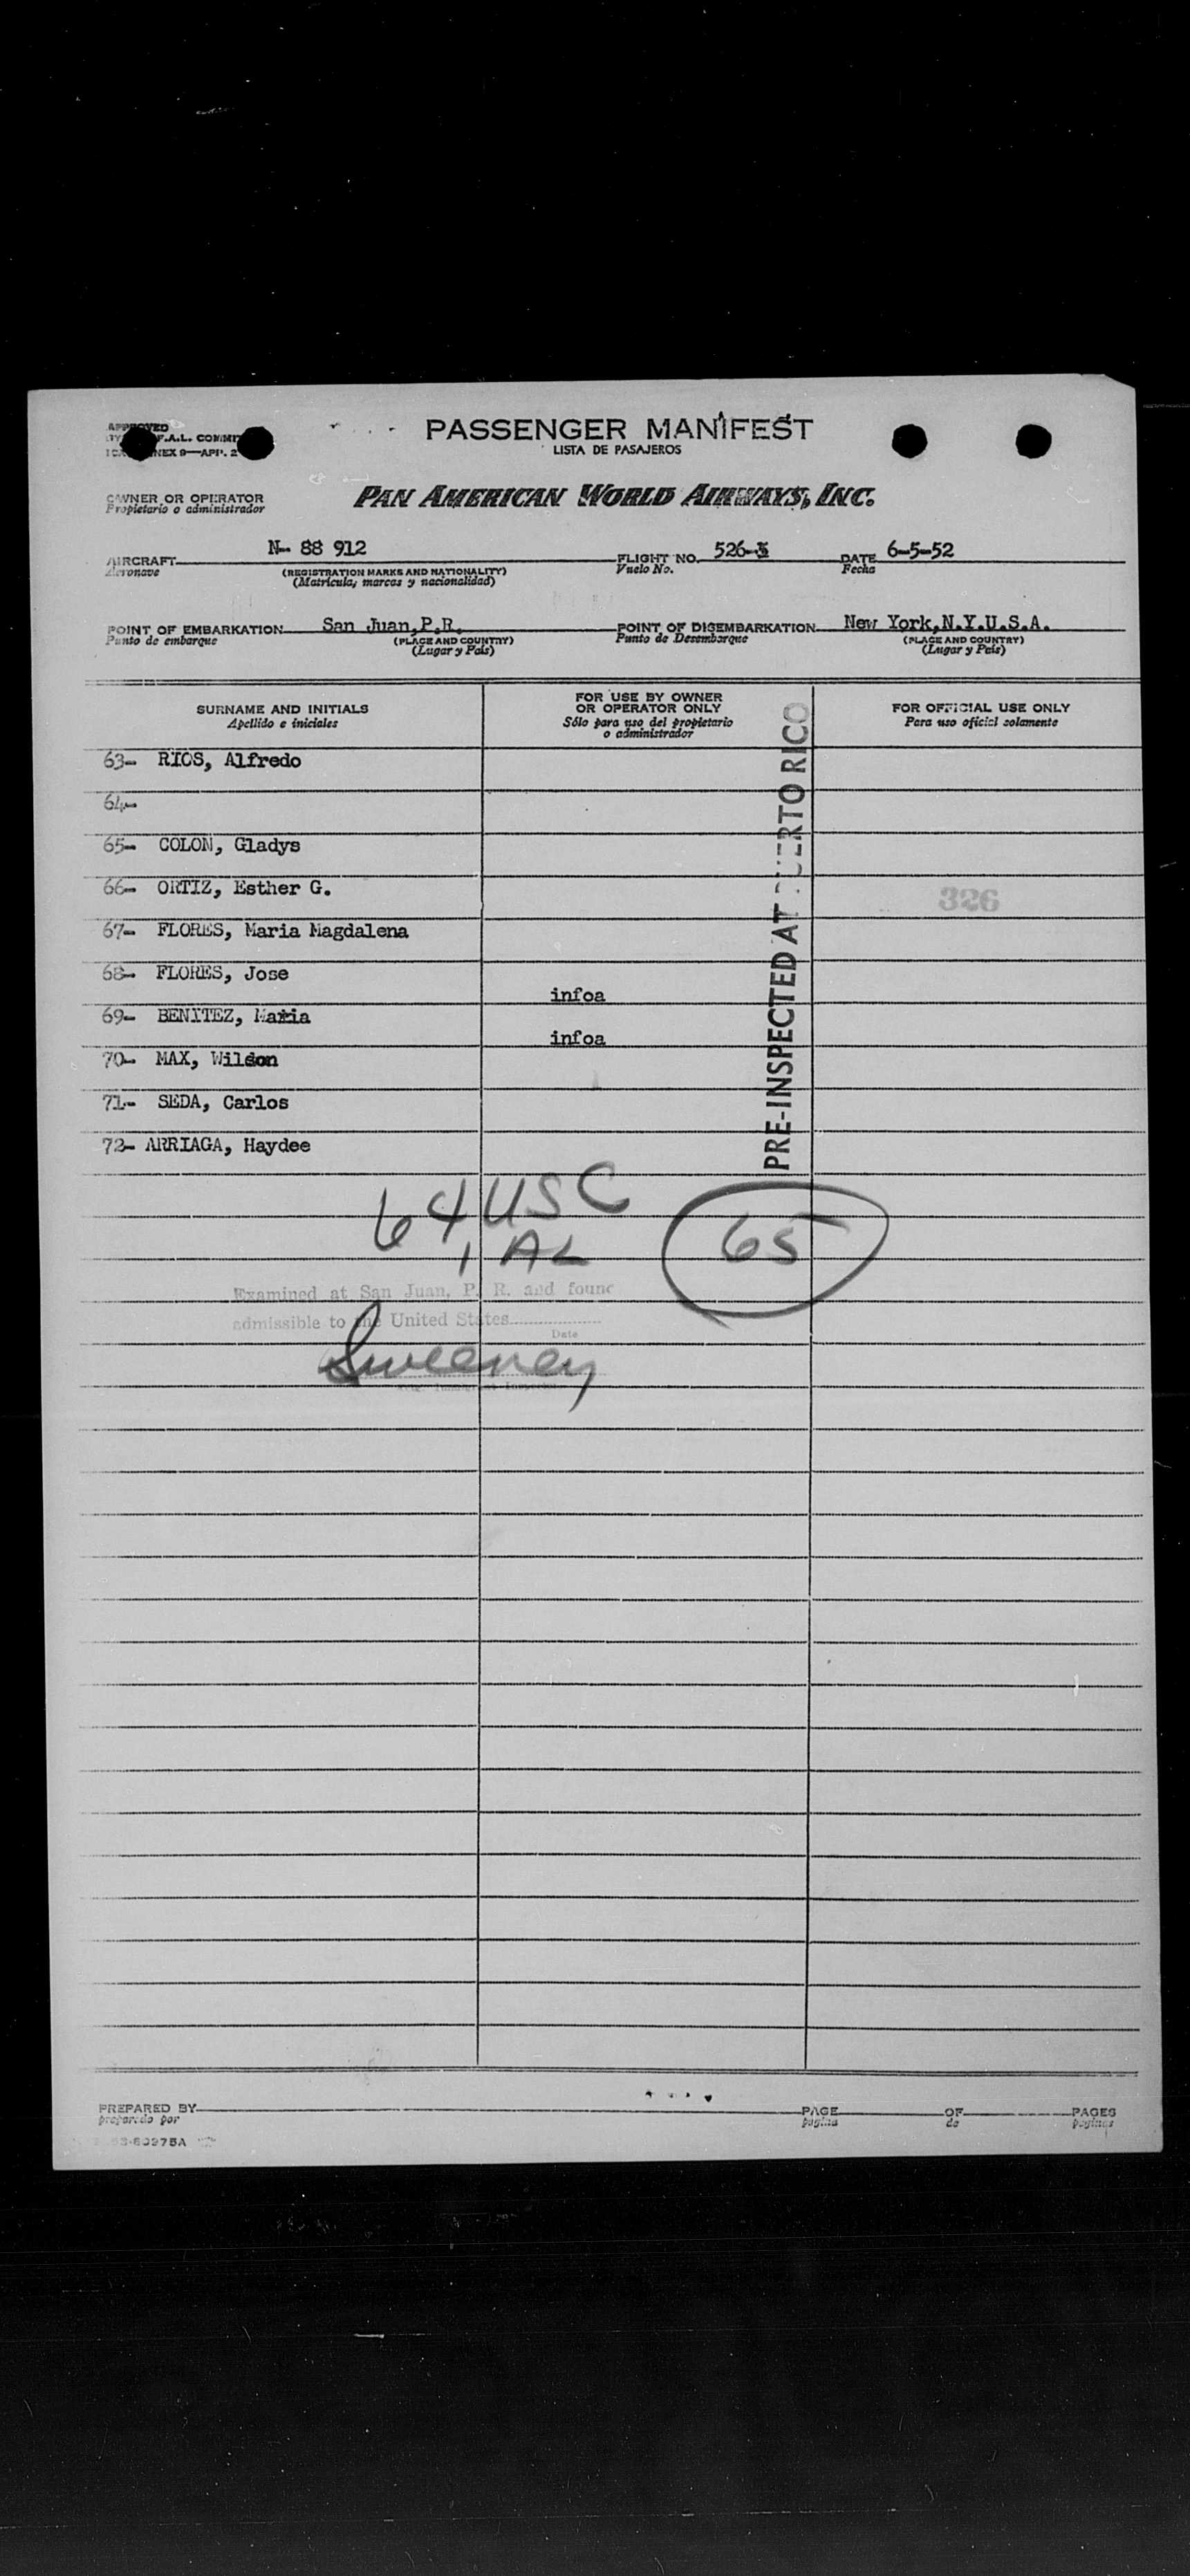 APPROVED
F.A.L. COMMIT
NEX 9—APP. 2
PASSENGER MANIFEST
LISTA DE PASAJEROS
OWNER OR OPERATOR
Propietario o administrador
PAN AMERICAN WORLD AIRWAYS, INC.
AIRCRAFT N- 88 912 FLIGHT NO. 526- DATE 6-5-52
Aeronave (REGISTRATION MARKS AND NATIONALITY) Vuelo No. Fecha
(Matricula, marcas y nacionalidad)
POINT OF EMBARKATION San Juan,P.R. POINT OF DISEMBARKATION New York,N.Y.U.S.A.
Punto de embarque (PLACE AND COUNTRY) Punto de Desembarque (PLACE AND COUNTRY)
(Lugar y País) (Lugar y País)
SURNAME AND INITIALS
Apellido e iniciales
FOR USE BY OWNER
OR OPERATOR ONLY
Sólo para uso del propietario
o administrador
FOR OFFICIAL USE ONLY
Para uso oficial solamente
63- RIOS, Alfredo
64-
65- COLON, Gladys
66- ORTIZ, Esther G.
326
67- FLORES, Maria Magdalena
68- FLORES, Jose
infoa
69- BENITEZ, Maria
infoa
70- MAX, Wilson
71- SEDA, Carlos
72- ARRIAGA, Haydee
PRE-INSPECTED AT PUERTO RICO
64 USC
1 AL
65
Examined at San Juan, P. R. and found
admissible to the United States
Date
Sweeney
PREPARED BY PAGE OF PAGES
preparado por página de páginas